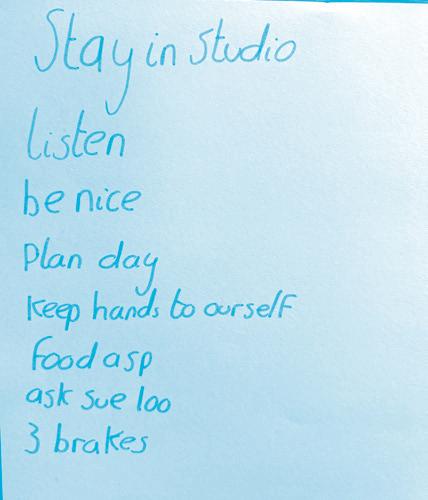 Stay in studio
listen
be nice
Plan day
keep hands to ourself
food asp
ask sue loo
3 brakes